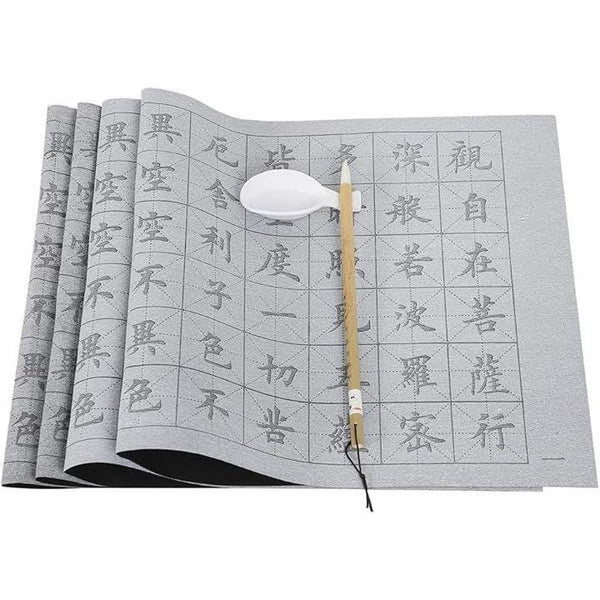 觀自在菩薩行
深般若波羅密
多照見五
皆度一切苦
厄舍利子色不
異空空不異色
異空空不異色
異空空不異色
一